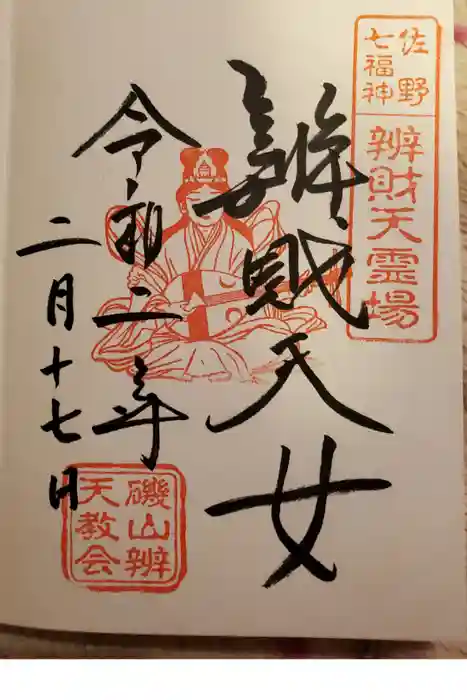 佐野
七福神
辨財天霊場
辨財天女
令和二年
二月十七日
磯山辨
天教会